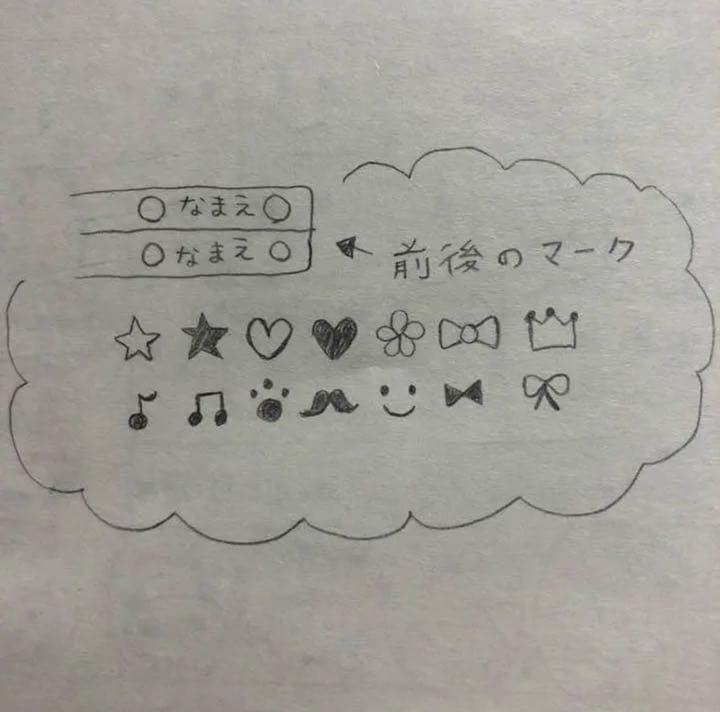 ○なまえ○
○なまえ○
前後のマーク